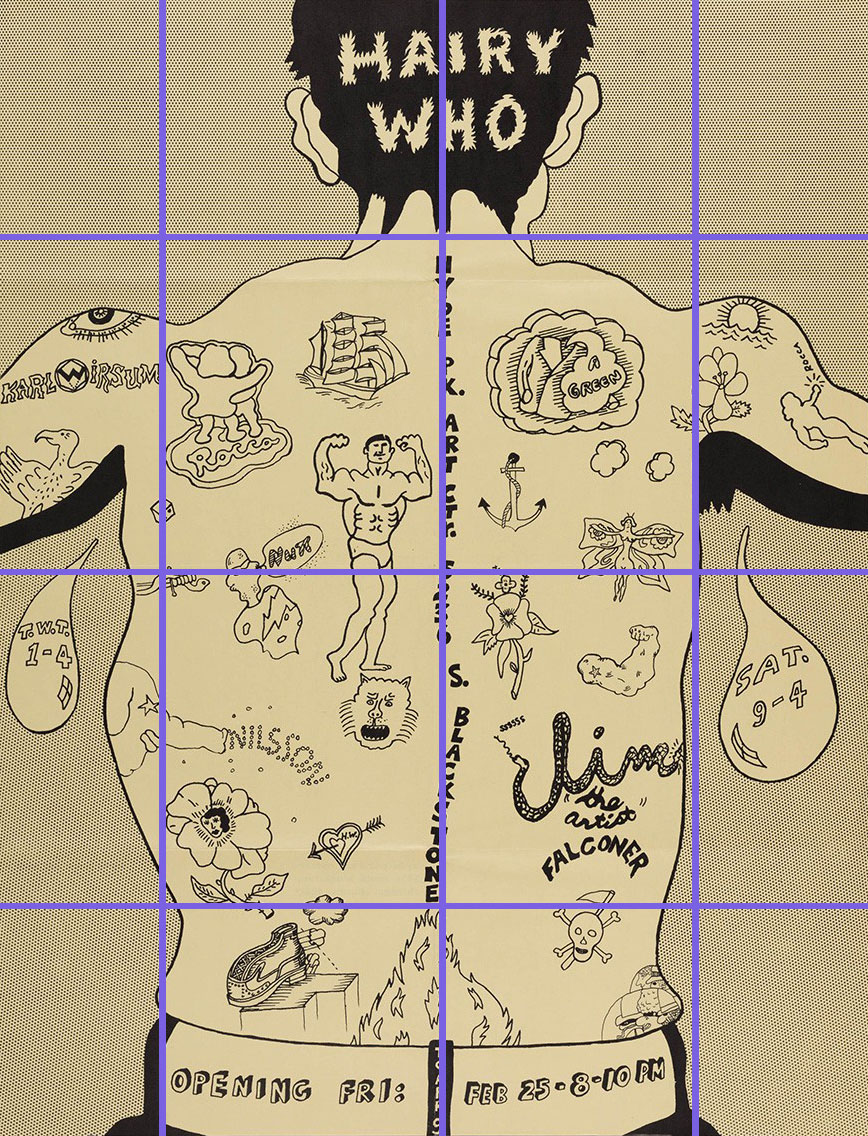 HAIRY
WHO
HYDE PK. ART CTR. 5236 S. BLACKSTONE
KARL WIRSUM
Rocca
A
GREEN
ROCCA
NUTT
T.W.T.
1-4
SAT.
9-4
NILSSON
SSSSSS
Jim
the
artist
FALCONER
OPENING FRI: FEB 25-8-10 PM